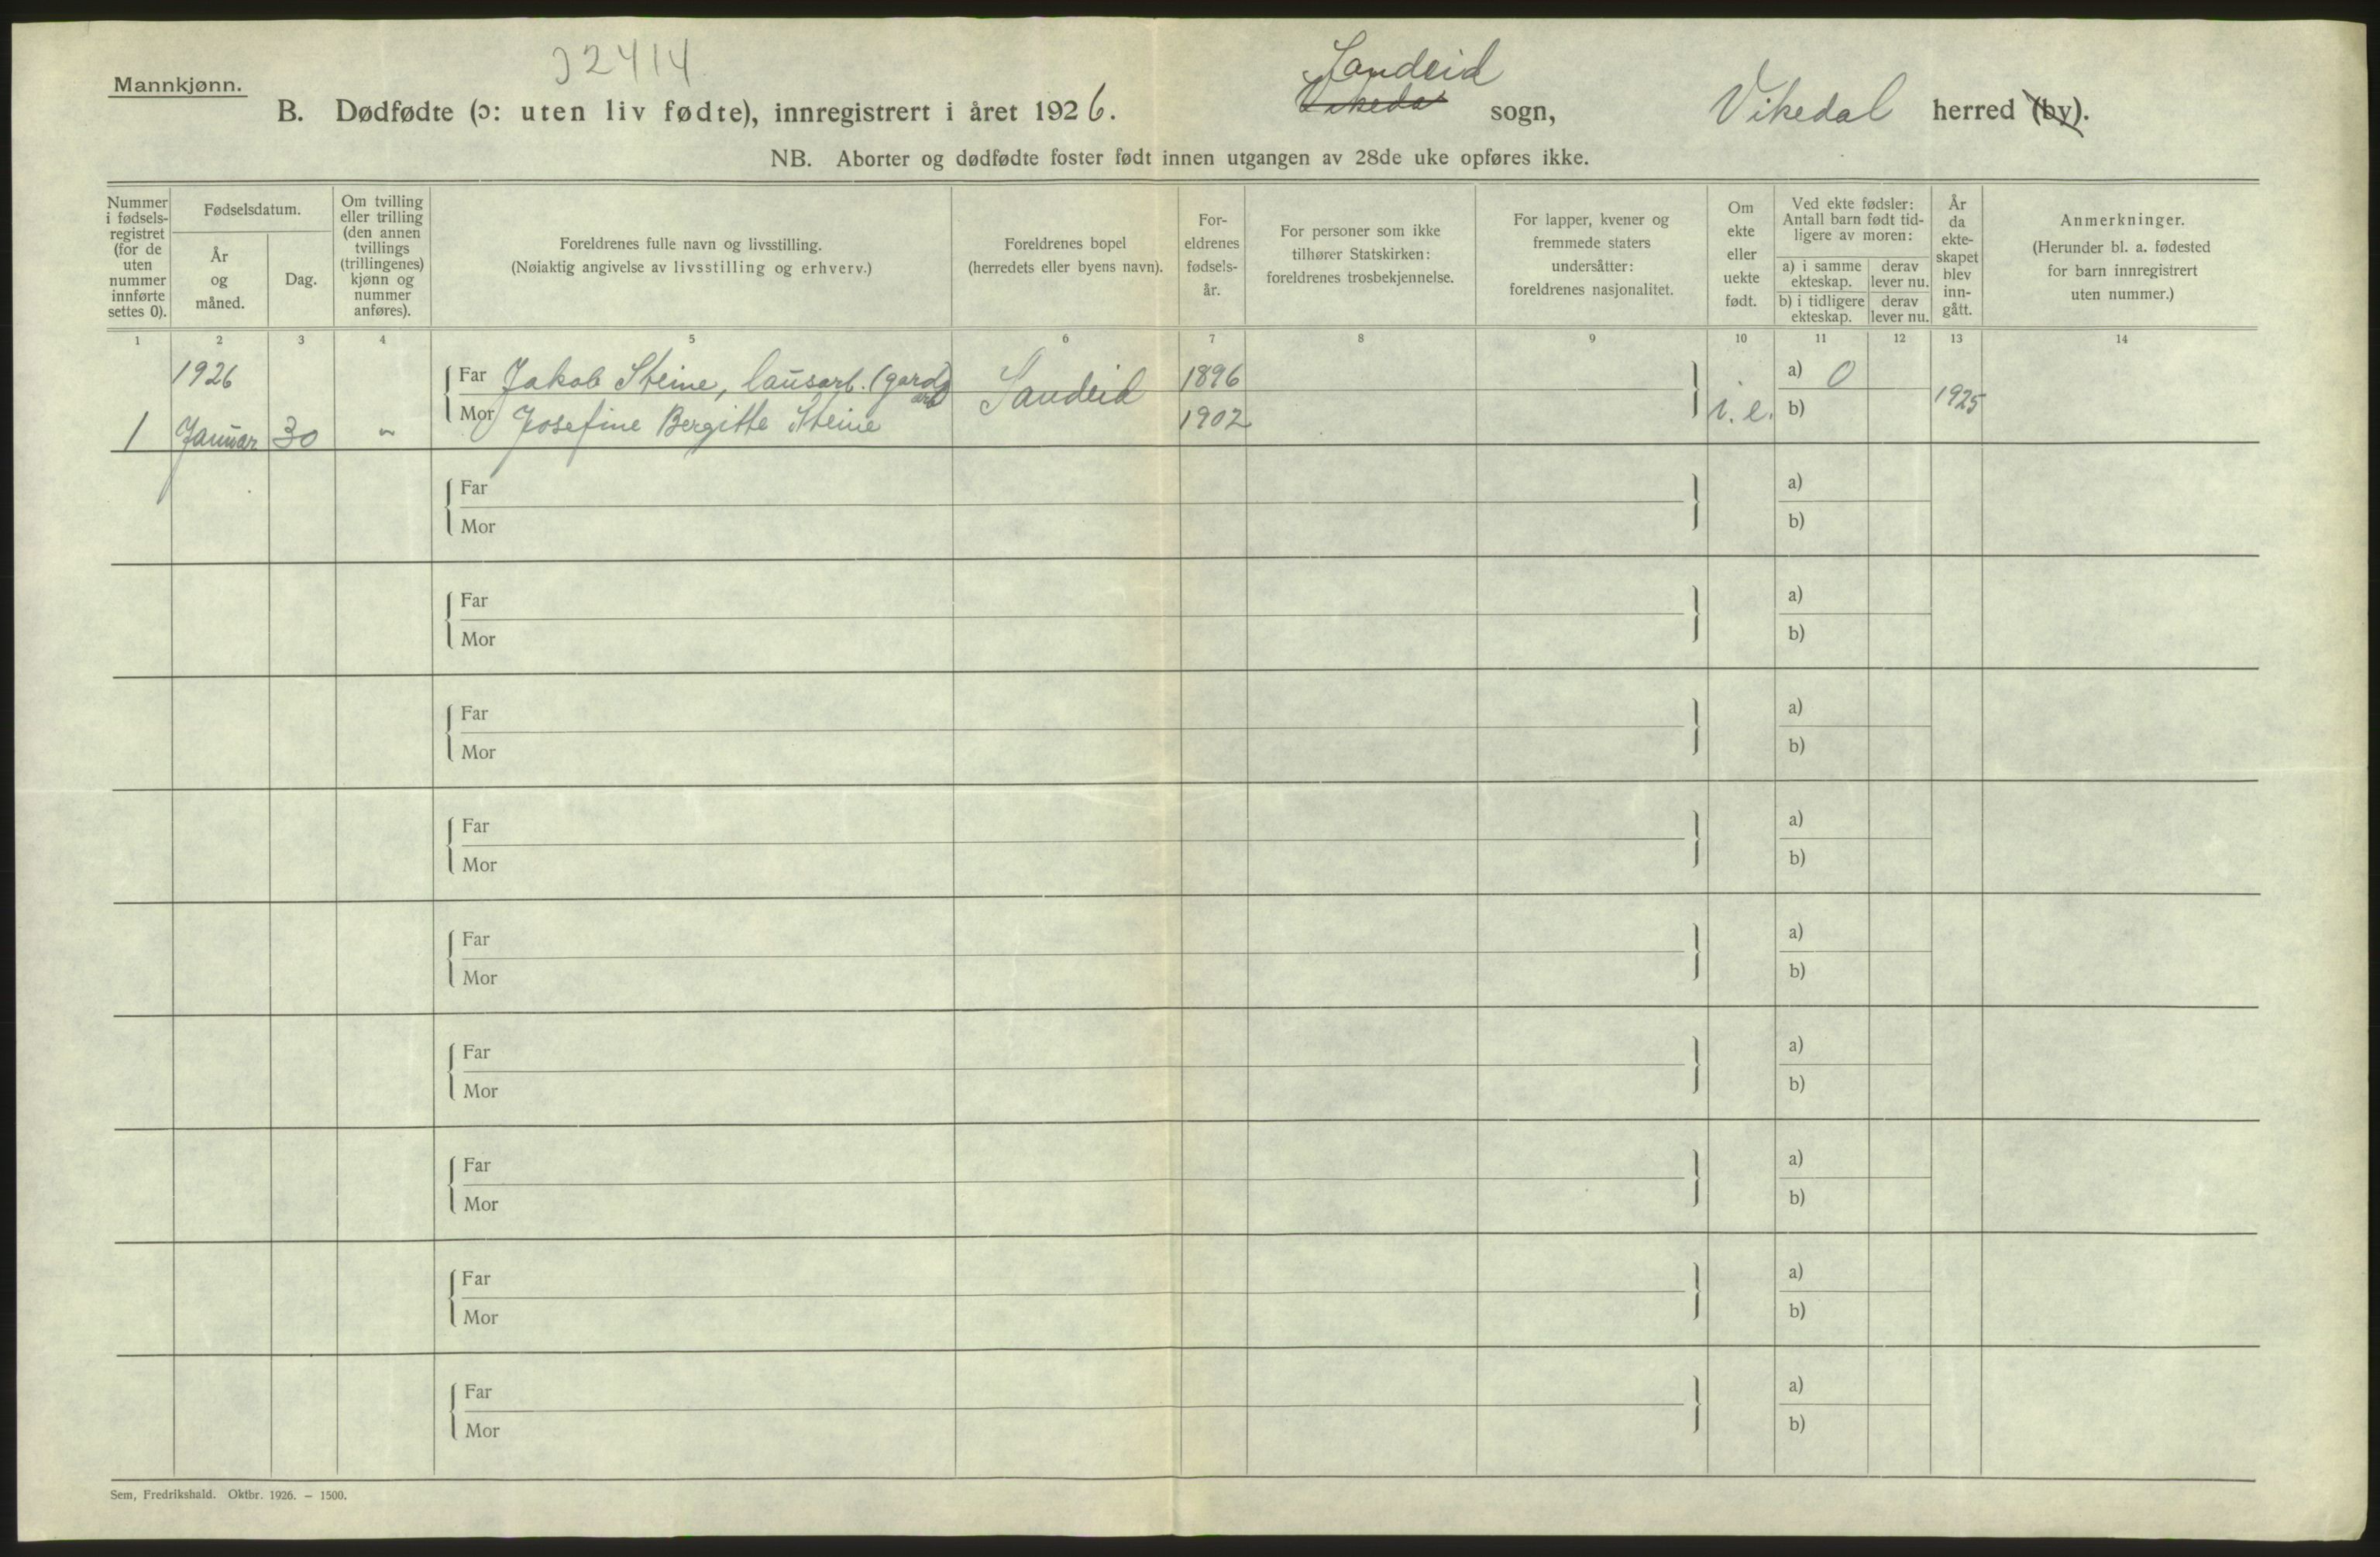 Mannkjønn.
32414
B. Dødfødte (ɔ: uten liv fødte), innregistrert i året 1926. Sandeid Vikedal sogn, Vikedal herred (by).
NB. Aborter og dødfødte foster født innen utgangen av 28de uke opføres ikke.
Nummer i fødsels-registret (for de uten nummer innførte settes 0).
Fødselsdatum.
År og måned.
Dag.
Om tvilling eller trilling (den annen tvillings (trillingenes) kjønn og nummer anføres).
Foreldrenes fulle navn og livsstilling.
(Nøiaktig angivelse av livsstilling og erhverv.)
Foreldrenes bopel
(herredets eller byens navn).
For-eldrenes fødsels-år.
For personer som ikke tilhører Statskirken: foreldrenes trosbekjennelse.
For lapper, kvener og fremmede staters undersåtter: foreldrenes nasjonalitet.
Om ekte eller uekte født.
Ved ekte fødsler: Antall barn født tid-ligere av moren:
a) i samme ekteskap.
derav lever nu.
b) i tidligere ekteskap.
derav lever nu.
År da ekte-skapet blev inn-gått.
Anmerkninger.
(Herunder bl. a. fødested for barn innregistrert uten nummer.)
1 2 3 4 5 6 7 8 9 10 11 12 13 14
1926 Far Jakob Steine, lausarb. (gards arb) Sandeid 1896 a) 0 1925
1 Januar 30 " Mor Josefine Bergitte Steine 1902 i. e. b)
Far a)
Mor b)
Far a)
Mor b)
Far a)
Mor b)
Far a)
Mor b)
Far a)
Mor b)
Far a)
Mor b)
Far a)
Mor b)
Far a)
Mor b)
Far a)
Mor b)
Sem, Fredrikshald. Oktbr. 1926. – 1500.